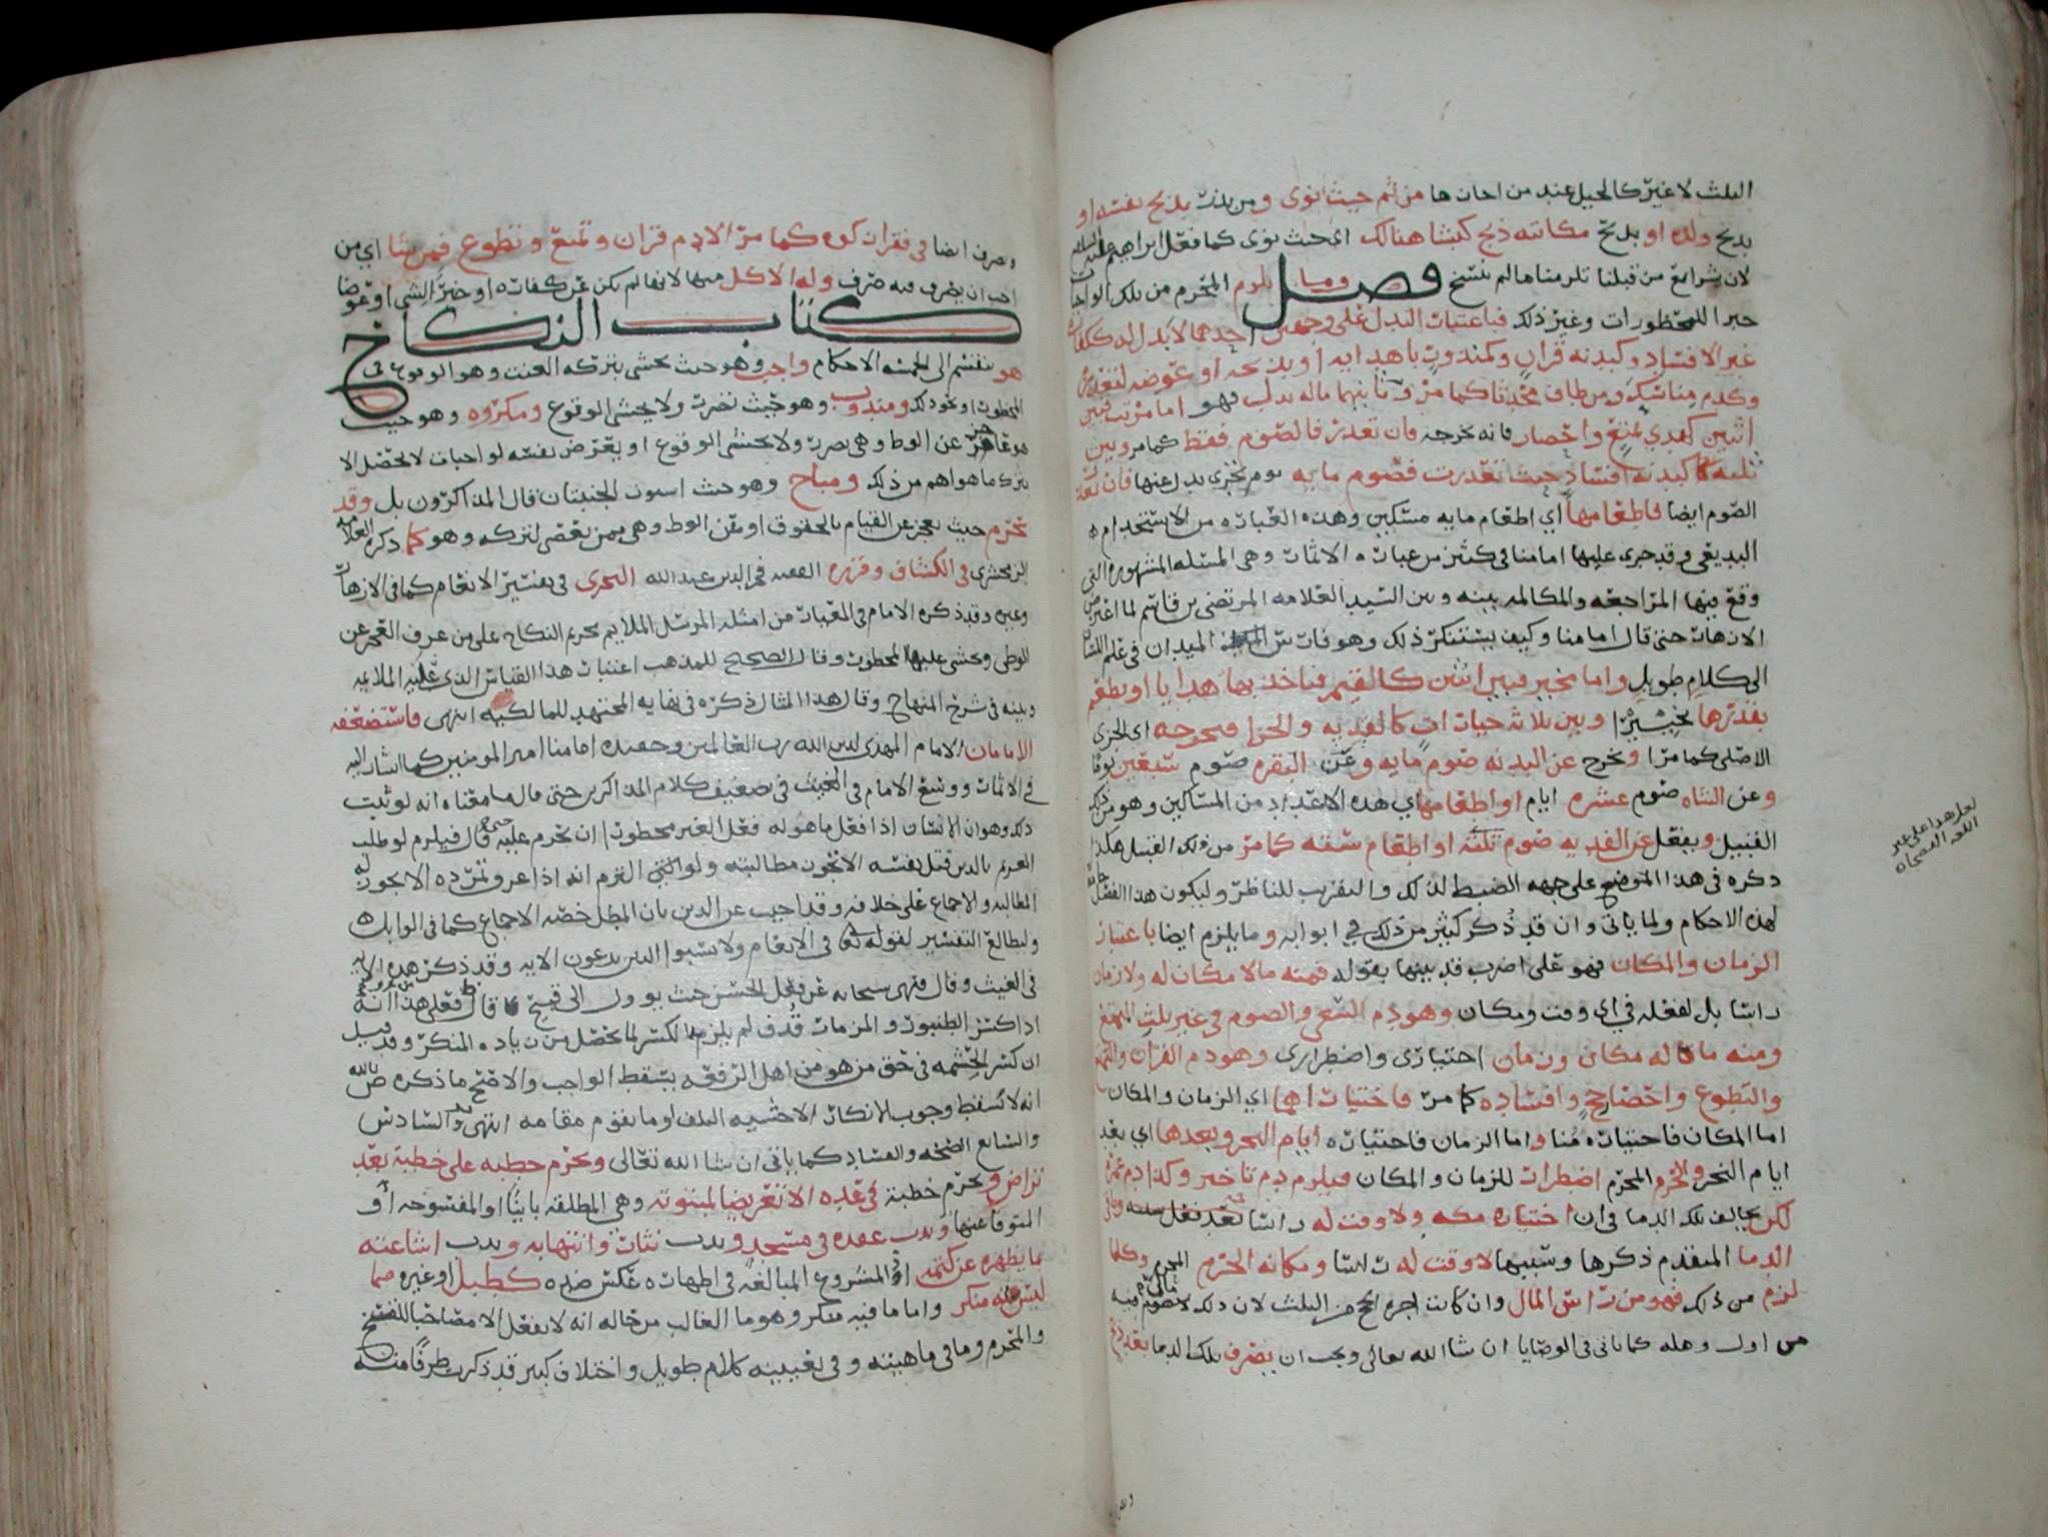 الثلث لا غير كالحيل عند من اجازها من ثم حيث نوى ومن نذر بذبح نفسه او
بذبح ولده او بذبح مكاتبه ذبح كبشا هنالك اى حيث نوى كما فعل ابراهيم عليه السلام
لان شرايع من قبلنا تلزمنا ما لم تنسخ فصل وما يلزم المحرم من تلك الواجبات
جبر المحظورات وغير ذلك فباعتبار البدل على وجهين احدهما لا بدل له ككفارات
غير الافساد وكبدنه قران وكمنذور باهدايه او بذبحه او عوضه لتعذره
وكدم مناسك ومن طاف محدثا كما مر وثانيهما ماله بدل فهو اما مرتب فبين
اثنين كهدي تمتع واحصار فانه يخرجه فان تعذر فالصوم فقط كما مر وبين
ثلثه كبدنه افساد حيث تعذرت فصوم مايه يوم تجزى بدل عنها فان تعذر
الصوم ايضا فاطعامها اي اطعام مايه مسكين وهذه العباره من الاستخدام
البديعى وقد جرى عليها امامنا فى كثير من عباره الاثمار وهى المسئله المشهوره التى
وقع فيها المراجعه والمكالمه بينه وبين السيد العلامه المرتضى بن قاسم لما اعترض
الازهار حتى قال امامنا وكيف يستنكر ذلك وهو فارس الميدان فى علم اللسان
الى كلام طويل واما تخيير فبين اثنين كالقيم فياخذ بها هدايا او يطعم
بقدرها تخييرا وبين ثلاثه حيات كالفديه والجزا فيخرجه اى الجزى
الاصلى كما مر او يخرج عن البدنه صوم مايه وعن البقره صوم سبعين يوما
وعن الشاه صوم عشره ايام او اطعامها اي هذه الاعداد من المساكين وهو من ذلك
القبيل ويفعل عن الفديه صوم ثلثه او اطعام سته كما مر من ذلك القبيل هكذا
ذكره فى هذا الموضع على جهه الضبط لذلك والتقريب للناظر وليكون هذا الفصل جامعا
لهذه الاحكام ولما ياتى وان قد ذكر كثير من ذلك في ابوابه وما يلزم ايضا باعتبار
الزمان والمكان فهو على اضرب قد بينها بقوله فمنه مالا مكان له ولا زمان
راسا بل يفعله في اي وقت ومكان وهو دم السعى والصوم فى غير ثلث التمتع
ومنه ما له مكان وزمان اختيارى واضطرارى وهو دم القران والتمتع
والتطوع واحصار حج وافساده كما مر فاختيارهما اي الزمان والمكان
اما المكان فاختياره منا واما الزمان فاختياره ايام النحر وبعدها اي بعد
ايام النحر والحرم المحرم اضطرار للزمان والمكان فيلزم دم تاخير وكذا دم عمره
لكن يخالف تلك الدما فى ان اختياره مكه ولا وقت له راسا بعد فعل
الدما المتقدم ذكرها وسببها لا وقت له راسا ومكانه الحرم المحرم وكلما
لزم من ذلك فهو من راس المال وان كانت اجره الحج من الثلث لان ذلك لا يقوم فيه
من اول وهله كما ياتى فى الوصايا ان شا الله تعالى ويجب ان يصرف تلك الدما بعد ذبح
لعل هذا على غير
اللغه الفصحاه
وصرف ايضا فى فقرا كوه كما مر الا دم قران وتمتع وتطوع فمن شا اي من
احب ان يصرف فيه صرف وله الاكل منها لانها لم تكن عن كفاره او جبرا لشى او عوضا
كتاب النكاح
هو ينقسم الى الخمسه الاحكام واجب وهو حيث يخشى بتركه العنت وهو الوقوع فى
المحظور او نحو ذلك ومندوب وهو حيث تضرر ولا يخشى الوقوع ومكروه وهو حيث
هو عاجز عن الوطء وهى تضرر ولا يخشى الوقوع او يعرض نفسه لواجبات لا يحصل الا
بترك ما هو اهم من ذلك ومباح وهو حيث استوت الجنبتان قال المذاكرون بل وقد
يحرم حيث يعجز عن القيام بالحقوق او عن الوط وهى ممن تعصى لتركه وهو كما ذكره العلامه
الزمخشرى فى الكشاف وقرره الفقيه فخر الدين عبد الله النجرى فى تفسير الانعام كما فى الازهار
وغيره وقد ذكره الامام فى المعيار من امثله المرسل الملايم تحريم النكاح على من عرف العجز عن
الوطى ويخشى عليها المحظور وقال الصحيح للمذهب اعتبار هذا القياس الذى عليه الملايمه
وبينه فى شرح المنهاج وقال هذا المثال ذكره فى نهايه المجتهد للمالكيه انتهى فاستضعفه
الامامان الامام المهدى لدين الله رب العالمين وحفيده امامنا امير المومنين كما اشار اليه
فى الاثمار ووسع الامام فى الغيث فى تضعيف كلام المذاكرين حتى قال ما معناه انه لو ثبت
ذلك وهو ان الانسان اذا فعل ما هو له فعل الغير محظورا ان يحرم عليه قال فيلزم لو طلب
الغريم بالدين قتل نفسه الا تجوز مطالبته ولو التزم انه اذا عرف تمرده الا يجوز له
المطالبه والاجماع على خلافه وقد اجيب عن الدين بان المطل خصه الاجماع كما فى الوابل
وليطالع التفسير لقوله تعالى فى الانعام ولا تسبوا الذين يدعون الايه وقد ذكر هذه الايه
فى الغيث وقال فنهى سبحانه عن فعل الحسن حيث يوول الى قبيح قال فعلى هذا انه
اذا كسر الطنبور والمزمار قذف لم يلزم الكسر لما يحصل من زياده المنكر وقد قيل
ان كسر الحشمه فى حق من هو من اهل الرفعه يسقط الواجب والاصح ما ذكره ص بالله
انه لا يسقط وجوب الانكار الا خشيه التلف او ما يقوم مقامه انتهى والسادس
والسابع الصحه والفساد كما ياتى ان شا الله تعالى ويحرم خطبه على خطبة بعد
تراض ويحرم خطبة فى عده الا تعريضا لمبتوته وهى المطلقه باينا او المفسوخه او
المتوفا عنها وندب عقده فى مسجد وندب نثار وانتهابه وندب اشاعته
بما يظهره عن كتمه اذ المشروع المبالغه فى اظهاره عكس ضده كطبل او غيره مما
ليس فيه منكر واما ما فيه منكر وهو ما الغالب من حاله انه لا يفعل الا مصاحبا للفسق
والمحرم وما فى ماهيته وفى تعيينه كلام طويل واختلاف كبير قد ذكرت طرفا منه